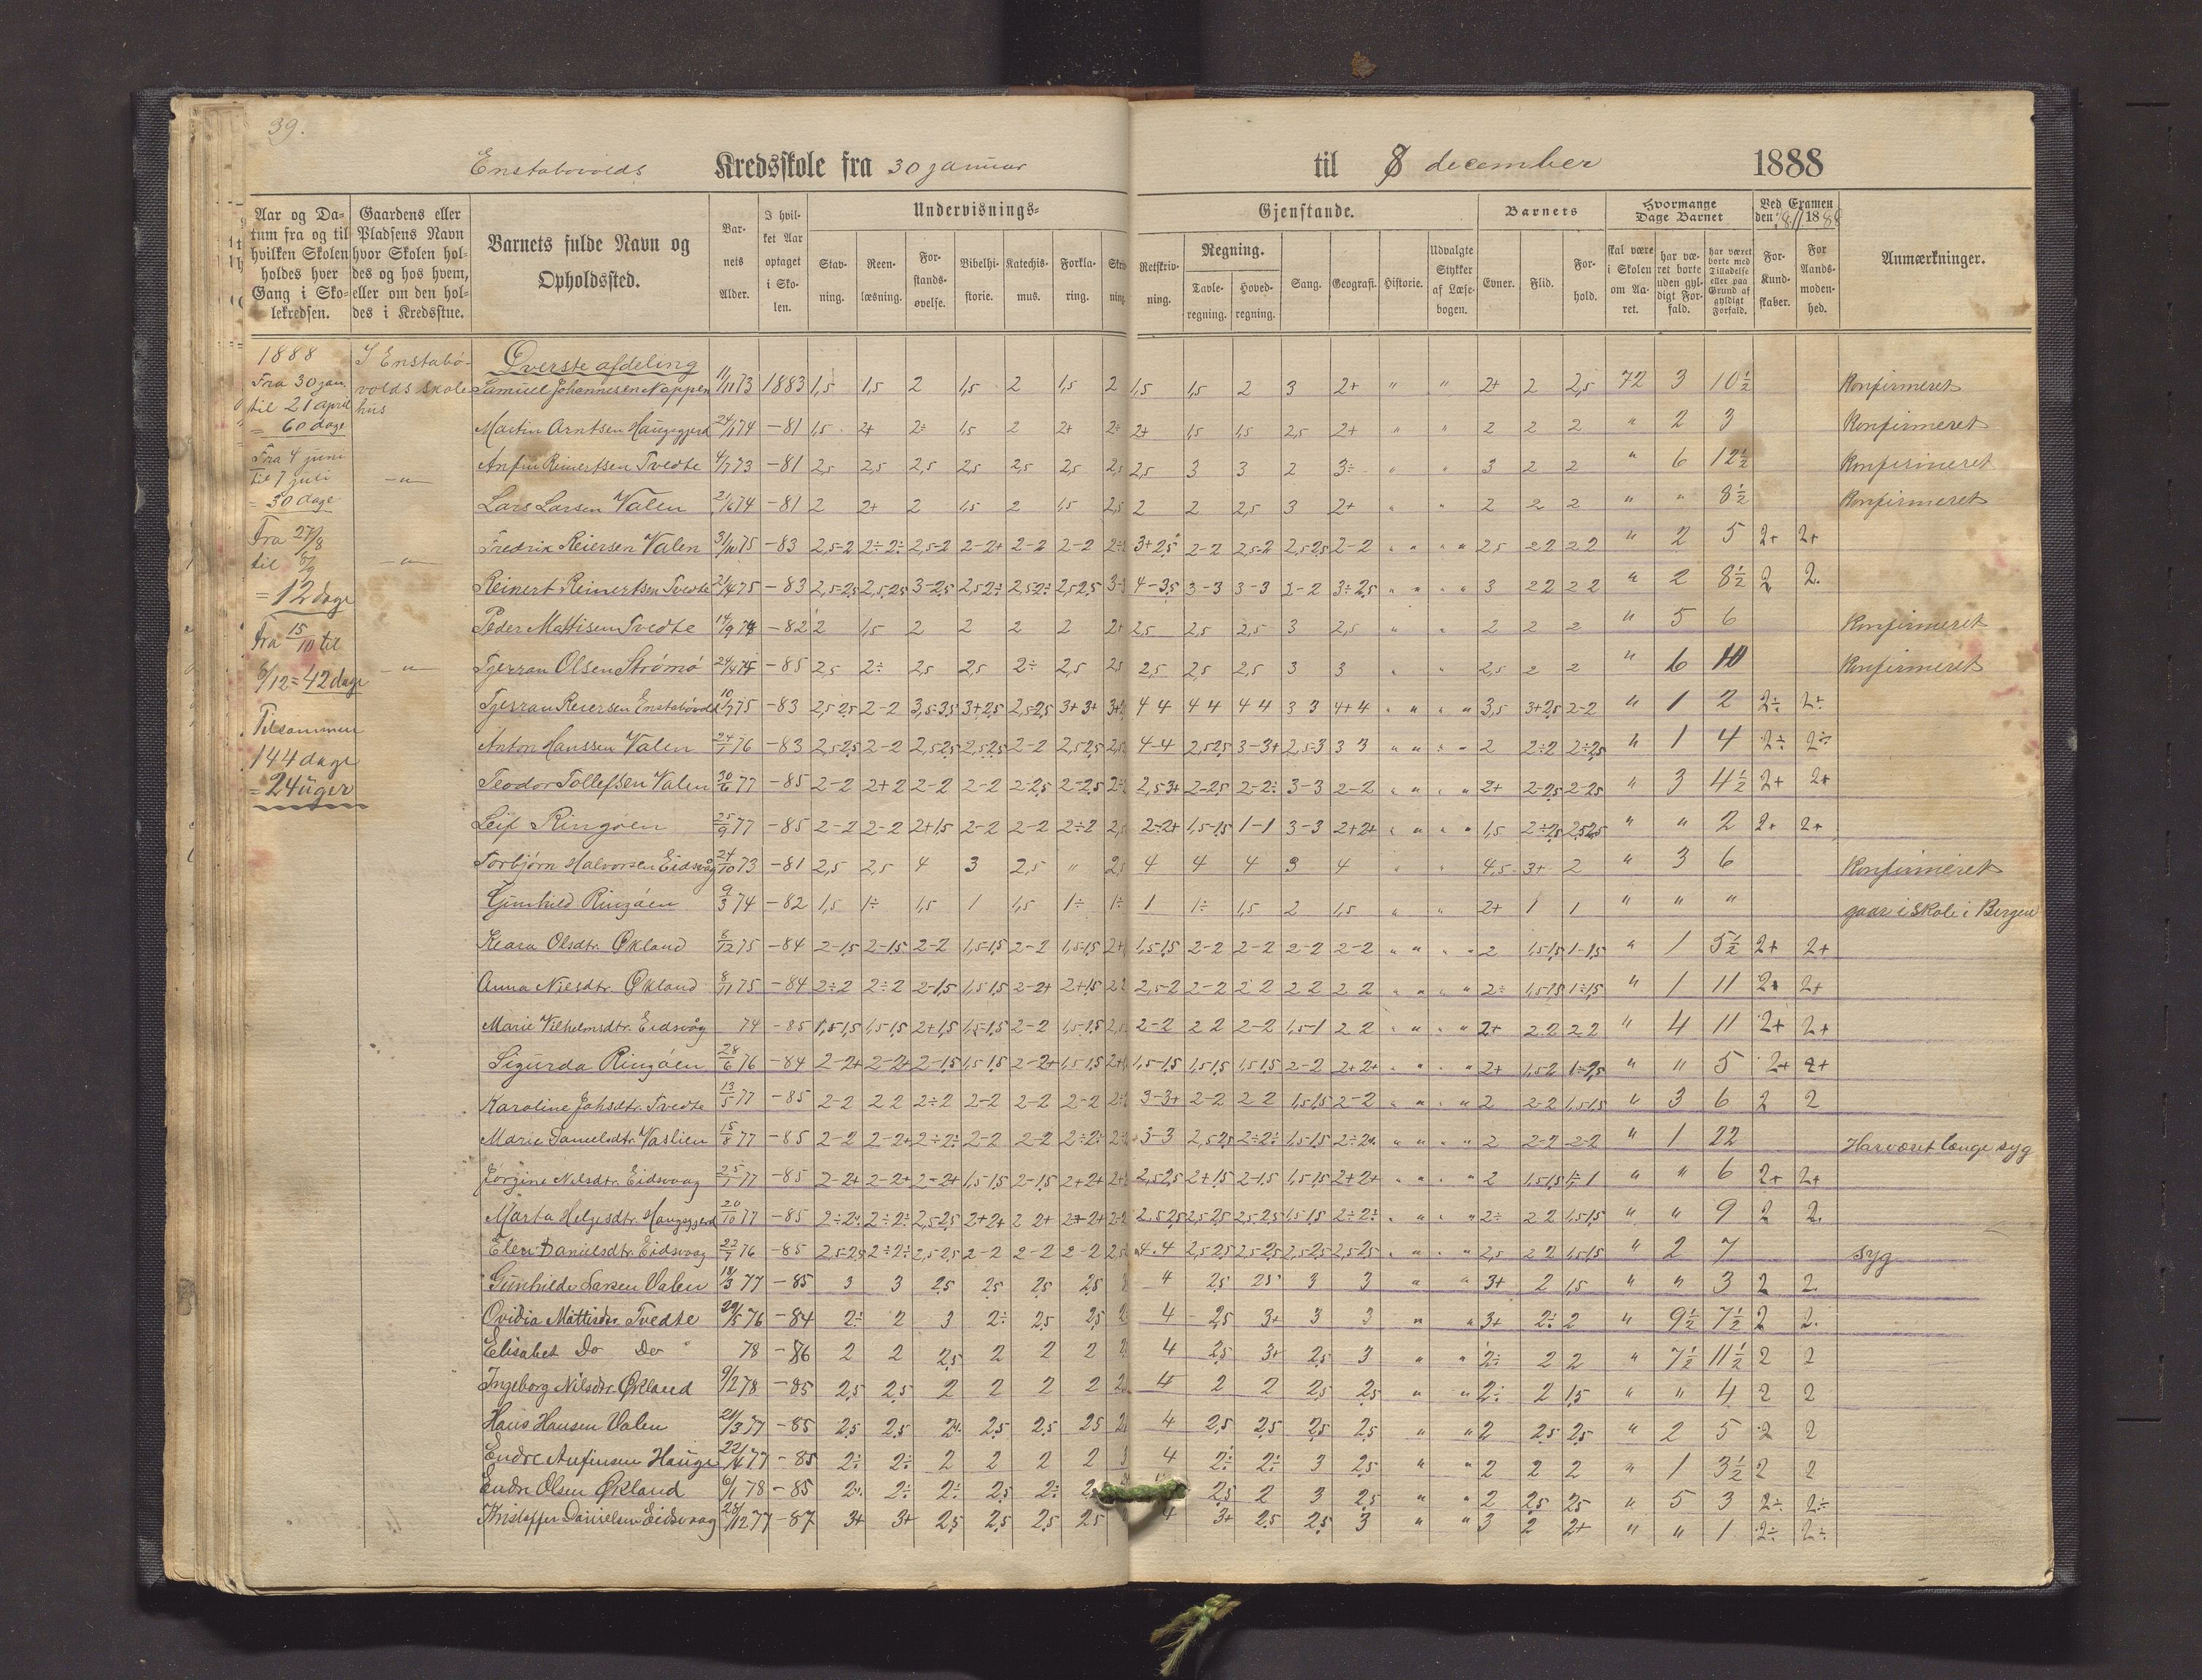 39.
Enstabovolds Kredsskole fra 30 januar til 8 december 1888
Aar og Datum fra og til hvilken Skolen holdes hver Gang i Skolekredsen.
Gaardens eller Pladsens Navn hvor Skolen holdes og hos hvem, eller om den holdes i Kredsstue.
Barnets fulde Navn og Opholdssted.
Barnets Alder.
I hvilket Aar optaget i Skolen.
Undervisnings-Gjenstande.
Stavning. Reenlæsning. Forstandsøvelse. Bibelhistorie. Katechismus. Forklaring. Skrivning
Retskrivning. Regning. Tavleregning. Hovedregning. Sang. Geografi. Historie. Udvalgte Stykker af Læsebogen.
Barnets Evner. Flid. Forhold.
Hvormange Dage Barnet
skal være i Skolen om Aaret.
har været borte uden gyldigt Forfald.
har været borte med Tilladelse eller paa Grund af gyldigt Forfald.
Ved Examen den 1888
For Kundskaber. For Aandsmodenhed.
Anmærkninger.
1888
Fra 30 jan.
til 21 april
= 60 dage
Fra 4 juni
til 7 juli
= 30 dage
Fra 27/8
til 8/9
= 12 dage
Fra 15/10 til
8/12 = 42 dage
Tilsammen
144 dage
= 24 uger
I Enstabo-
volds skole
hus
Øverste afdeling
Samuel Johannesen Nappen 11/11 73 1883 1,5 1,5 2 1,5 2 1,5 2 1,5 1,5 2 3 2+ " " 2+ 2 2,5 72 3 10½ Konfirmeret
Martin Arntsen Haugegjerd 24/1 74 -81 1,5 2+ 2÷ 1,5 2 2+ 2÷ 2+ 1,5 1,5 2,5 2+ " " 2 2 2 " 2 3 Konfirmeret
Anfin Reinertsen Tvedte 4/7 73 -81 2,5 2,5 2,5 2,5 2,5 2,5 2,5 2,5 3 3 2 3÷ " " 3 2 2 " 6 12½ Konfirmeret
Lars Larsen Valen 2/6 74 -81 2 2+ 2 1,5 2 1,5 2,5 2 2 2,5 3 2+ " " 2 2 2 " " 8½ Konfirmeret
Fredrik Reiersen Valen 31/10 75 -83 2,5-2 2÷2÷ 2,5-2 2-2+ 2-2 2-2 3+2,5 2-2 2,5-2 2,5-2,5 2-2 " " " " 2,5 2 2 2 2 " 2 5 2+ 2+
Reinert Reinertsen Tvedte 21/4 75 -83 2,5-2,5 2,5-2,5 3-2,5 2,5-2÷ 2,5-2÷ 2,5-2,5 4-3,5 3-3 3-3 2-2 3÷2,5 " " " " 3 2 2 2 2 " 2 8½ 2 2
Peder Mattisen Tvedte 14/9 74 -82 2 1,5 2 2 2 2 2+ 2,5 2,5 2,5 3 2,5 " " 2 2 2 " 5 6 Konfirmeret
Tjerran Olsen Strømø -85 2,5 2÷ 2,5 2,5 2÷ 2,5 2,5 2,5 2,5 2,5 3 3 " " 2,5 2 2 " 6 10 Konfirmeret
Tjerran Reiersen Enstabovold 10/7 75 -83 2,5-2,5 2-2 3,5-3,5 3+2,5 2,5-2,5 3+3+ 4 4 4 4 4 4 3 3 4+4 " " " " 3,5 3+2,5 2-2 " 1 2 2÷ 2÷
Anton Hanssen Valen 24/7 76 -83 2,5-2,5 2-2 2,5-2,5 2,5-2,5 2-2 2,5-2,5 4-4 2,5-2,5 3-3+ 2,5-3 3 3 " " " " 2 2÷2 2÷2,5 " 1 4 2÷ 2÷
Teodor Tollefsen Valen 30/6 77 -85 2-2 2+2 2-2 2-2 2-2,5 2-2,5 2,5-3+ 2-2,5 2-2÷ 3-3 2-2 " " " " 2+ 2-2,5 2-2,5 " 3 4½ 2+ 2+
Leif Ringøen 25/9 77 -85 2-2 2-2 2+1,5 2-2 2-2 2÷2 2-2+ 1,5-1,5 1-1 3-3 2+2+ " " " " 1,5 2÷2,5 2,5-2,5 " " 2 2+ 2+
Torbjørn Halvorsen Eidsvåg 24/10 73 -81 2,5 2,5 4 3 2,5 " 2,5 4 4 4 3 4 " " 4,5 3+ 2 " 3 6 Konfirmeret
Gunhild Ringøen 9/3 74 -82 1,5 1÷ 1,5 1 1,5 1÷ 1÷ 1 1÷ 1,5 2 1,5 " " 2+ 1 1 " " " gaar i skole i Bergen
Klara Olsdtr. Økland 8/12 75 -84 2-1,5 2-1,5 2-2 1,5-1,5 2-2 1,5-1,5 1,5-1,5 2-2 2-2 2-2 2-2 " " " " 2 1,5-1,5 1-1,5 " 1 5½ 2+ 2+
Anna Nilsdtr. Økland 8/11 75 -84 2÷2 2÷2 2-1,5 1,5-1,5 2-2+ 2+1,5 2,5-2 2-2 2 2 2 2 2 2 " " " " 2÷ 1,5-1,5 1÷1,5 " 1 11 2+ 2+
Marie Vilhelmsdtr. Eidsvåg 74 -85 1,5-1,5 1,5-1,5 2+1,5 1,5-1,5 2-2 1,5-1,5 2-2 2 2 2-2 1,5-1 2 2 " " " " 2+ 2-2 2 2 " 4 11 2+ 2+
Sigurda Ringøen 28/6 76 -84 2-2+ 2-2+ 2-1,5 1,5-1,5 2-2+ 1,5-1,5 1,5-1,5 1,5-1,5 1,5-1,5 2-2 2+2+ " " " " 2+ 1,5-2 " " 5 2+ 2+
Karoline Johsdtr. Tvedte 13/5 77 -85 2-2 2 2 2÷2 2-2 2-2 2-2 3-3+ 2-2 2 2 1,5-1,5 2-2 " " " " 2 2-2 1,5-1,5 " 3 6 2 2
Marie Danielsdtr. Vaslien 15/8 77 -85 2-2 2-2+ 2÷2÷ 2-2 2-2 2÷2÷ 3-3 2,5-2,5 2÷2÷ 1,5-1,5 2÷2÷ " " " " 2 2-2 2-2 " 1 22 Har været længe syg
Jørgine Nilsdtr. Eidsvaag 25/1 77 -85 2-2+ 2-2+ 2-2+ 1,5-1,5 2-1,5 2+2+ 2,5-2,5 2+1,5 2-1,5 1,5-1,5 2+2+ " " " " 2 1,5-1,5 1÷1 " " 6 2+ 2+
Marta Helgesdtr. Haugegjerd 20/10 77 -85 2÷2÷ 2÷2÷ 2,5-2,5 2+2+ 2 2+ 2+2+ 2,5-2,5 2,5-2,5 2,5-2,5 1,5-1,5 2÷2÷ " " " " 2÷ 2 2 1,5-1,5 " " 9 2 2
Elen Danielsdtr. Eidsvaag 22/7 76 -85 2,5-2,5 2÷2÷ 2,5-2,5 2-2 2-2 2-2 4-4 2,5-2,5 2,5-2,5 2,5-2,5 2,5-2,5 " " " " 2,5 2 2 1,5-1,5 " 2 7 syg
Gunhilde Larsen Valen 18/3 77 -85 3 3 2,5 2,5 2,5 2,5 4 2,5 2,5 3 3 " " 3+ 2 1,5 " " 3 2 2
Ovidia Mattisdtr Tvedte 29/5 76 -84 2÷ 2 3 2÷ 2,5 2,5 2 4 2,5 3+ 3 3 " " 3+ 2÷ 2 " 9½ 7½ 2 2
Elisabet Do Do 78 -86 2 2 2,5 2 2 2 4 2,5 3+ 2,5 3 " " 2÷ 2 2 " 7½ 11½ 2 2
Ingeborg Nilsdtr. Økland 9/2 78 -85 2,5 2,5 2 2 2 2 4 2 2 2,5 2,5 " " 2÷ 2 1,5 " " 4 2 2
Hans Hansen Valen 21/3 77 -85 2,5 2,5 2÷ 2,5 2,5 2,5 4 2,5 2,5 2,5 2,5 " " 2 2,5 2,5 " 2 5 2 2
Endre Anfinsen Hauge 22/4 77 -85 2÷ 2÷ 2 2 2 2 3 4 2÷ 2÷ 3 2,5 " " 2 2 2 " 1 3½ 2 2
Endre Olsen Økland 6/1 78 -85 2÷ 2÷ 2÷ 2,5 2÷ 2,5 2 3 2,5 " " 2 2,5 2,5 " 5 3 2÷ 2÷
Kristoffer Danielsen Eidsvaag 28/12 77 -87 3+ 3+ 2,5 2,5 2,5 2,5 4 3+ 2,5 2,5 3 " " 3 2 2+ " " 1 2÷ 2÷